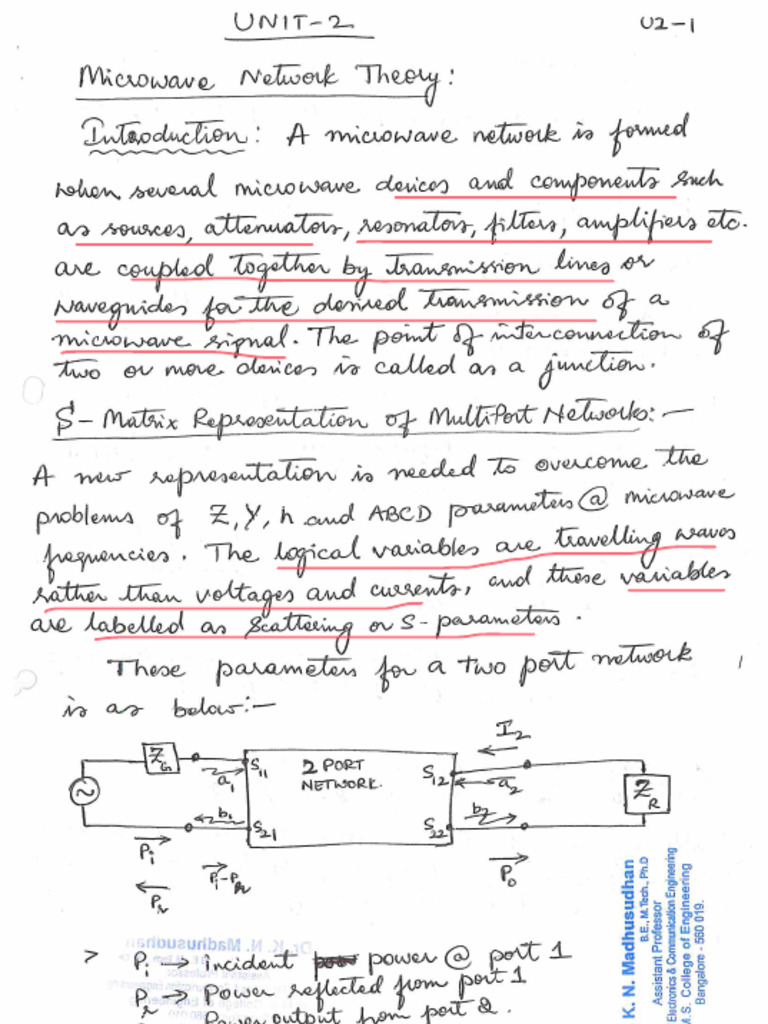 UNIT-2
U2-1
Microwave Network Theory:
Introduction: A microwave network is formed
when several microwave devices and components such
as sources, attenuators, resonators, filters, amplifiers etc.
are coupled together by transmission lines or
waveguides for the desired transmission of a
microwave signal. The point of interconnection of
two or more devices is called as a junction.
S-Matrix Representation of MultiPort Networks:-
A new representation is needed to overcome the
problems of Z, Y, h and ABCD parameters @ microwave
frequencies. The logical variables are travelling waves
rather than voltages and currents, and these variables
are labelled as Scattering or S-parameters.
These parameters for a two port network
is as below:-
I2
ZG
S11
2 PORT
NETWORK.
S12
a1
a2
ZR
b1
S21
S22
b2
Pi
Pi-Pr
Pr
Po
> Pi → incident power @ port 1
Pr → Power reflected from port 1
Power output from port 2.
K. N. Madhusudhan
B.E., M.Tech., Ph.D
Assistant Professor
Electronics & Communication Engineering
M.S. College of Engineering
Bangalore - 560 019.